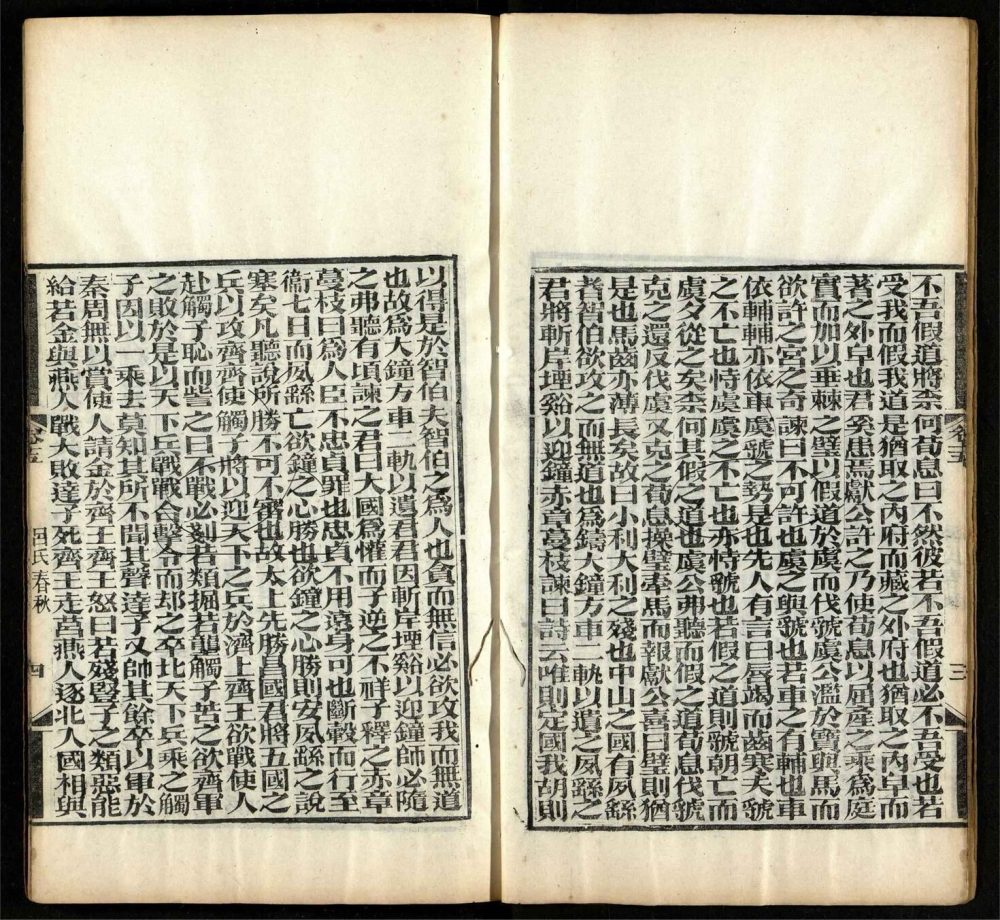 不吾假道將柰何荀息曰不然彼若不吾假道必不吾受也若
受我而假我道是猶取之內府而臧之外府也猶取之內皁而
著之外皁也君奚患焉獻公許之乃使荀息以屈產之乘爲庭
實而加以垂棘之璧以假道於虞而伐虢虞公濫於寶與馬而
欲許之宮之奇諫曰不可許也虞之與虢也若車之有輔也車
依輔輔亦依車虞虢之勢是也先人有言曰脣竭而齒寒夫虢
之不亡也恃虞虞之不亡也亦恃虢也若假之道則虢朝亡而
虞夕從之矣柰何其假之道也虞公弗聽而假之道荀息伐虢
克之還反伐虞又克之荀息操璧牽馬而報獻公喜曰璧則猶
是也馬齒亦薄長矣故曰小利大利之殘也中山之國有夙繇
者智伯欲攻之而無道也爲鑄大鐘方車二軌以遺之夙繇之
君將斬岸堙谿以迎鐘赤章蔓枝諫曰詩云唯則定國我胡則
卷十五
三
以得是於智伯夫智伯之爲人也貪而無信必欲攻我而無道
也故爲大鐘方車二軌以遺君君因斬岸堙谿以迎鐘師必隨
之弗聽有頃諫之君曰大國爲懽而子逆之不祥子釋之赤章
蔓枝曰爲人臣不忠貞罪也忠貞不用遠身可也斷轂而行至
衞七日而夙繇亡欲鐘之心勝也欲鐘之心勝則安夙繇之說
塞矣凡聽說所勝不可不審也故太上先勝昌國君將五國之
兵以攻齊齊使觸子將以迎天下之兵於濟上齊王欲戰使人
赴觸子恥而訾之曰不戰必剗若類掘若壟觸子苦之欲齊軍
之敗於是以天下兵戰戰合擊令而却之卒北天下兵乘之觸
子因以一乘去莫知其所不聞其聲達子又帥其餘卒以軍於
秦周無以賞使人請金於齊王齊王怒曰若殘豎子之類惡能
給若金與燕人戰大敗達子死齊王走莒燕人逐北入國相與
卷十五 呂氏春秋 四